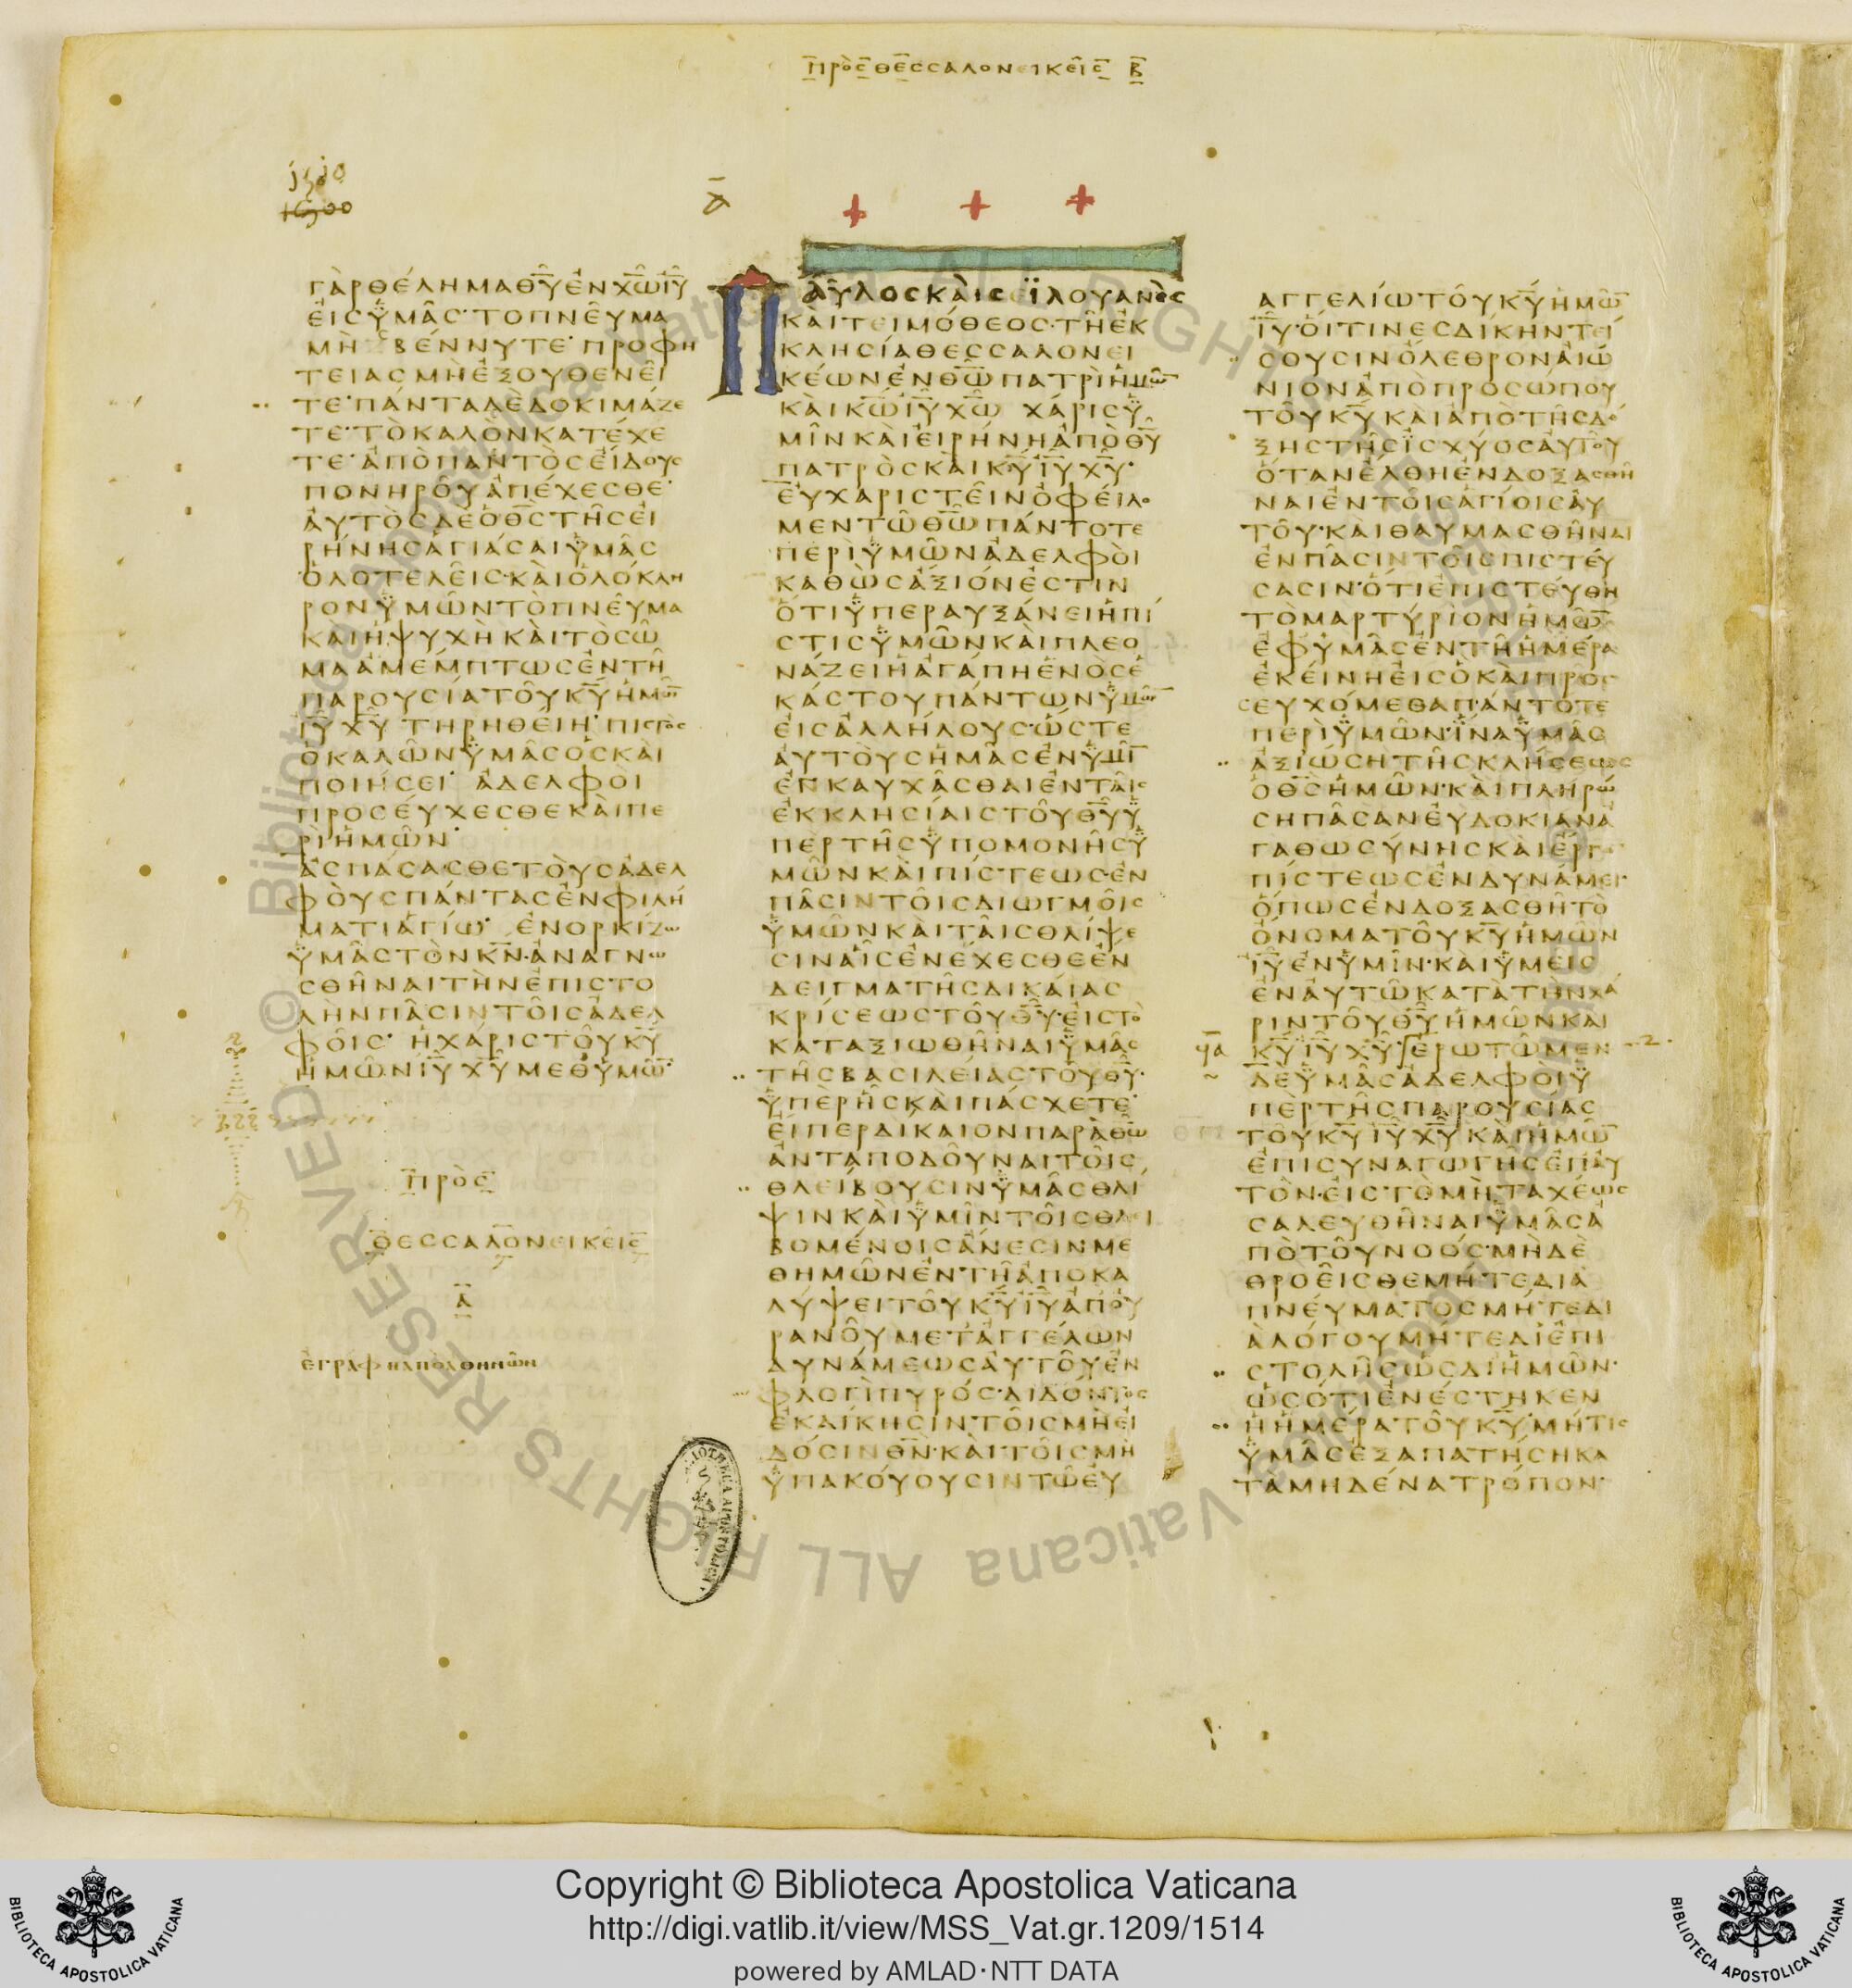 ΠΡΟΣ ΘΕΣΣΑΛΟΝΕΙΚΕΙΣ Β
1510
1500
Α
ΓΑΡ ΘΕΛΗΜΑ ΘΥ ΕΝ ΧΩ ΙΥ
ΕΙΣ ΥΜΑΣ· ΤΟ ΠΝΕΥΜΑ
ΜΗ ΖΒΕΝΝΥΤΕ· ΠΡΟΦΗ
ΤΕΙΑΣ ΜΗ ΕΞΟΥΘΕΝΕΙ
ΤΕ· ΠΑΝΤΑ ΔΕ ΔΟΚΙΜΑΖΕ
ΤΕ· ΤΟ ΚΑΛΟΝ ΚΑΤΕΧΕ
ΤΕ· ΑΠΟ ΠΑΝΤΟΣ ΕΙΔΟΥΣ
ΠΟΝΗΡΟΥ ΑΠΕΧΕΣΘΕ·
ΑΥΤΟΣ ΔΕ Ο ΘΣ ΤΗΣ ΕΙ
ΡΗΝΗΣ ΑΓΙΑΣΑΙ ΥΜΑΣ
ΟΛΟΤΕΛΕΙΣ· ΚΑΙ ΟΛΟΚΛΗ
ΡΟΝ ΥΜΩΝ ΤΟ ΠΝΕΥΜΑ
ΚΑΙ Η ΨΥΧΗ ΚΑΙ ΤΟ ΣΩ
ΜΑ ΑΜΕΜΠΤΩΣ ΕΝ ΤΗ
ΠΑΡΟΥΣΙΑ ΤΟΥ ΚΥ ΗΜΩ̅
ΙΥ ΧΥ ΤΗΡΗΘΕΙΗ· ΠΙΣΤΟΣ
Ο ΚΑΛΩΝ ΥΜΑΣ ΟΣ ΚΑΙ
ΠΟΙΗΣΕΙ· ΑΔΕΛΦΟΙ
ΠΡΟΣΕΥΧΕΣΘΕ ΚΑΙ ΠΕ
ΡΙ ΗΜΩΝ·
ΑΣΠΑΣΑΣΘΕ ΤΟΥΣ ΑΔΕΛ
ΦΟΥΣ ΠΑΝΤΑΣ ΕΝ ΦΙΛΗ
ΜΑΤΙ ΑΓΙΩ· ΕΝΟΡΚΙΖΩ
ΥΜΑΣ ΤΟΝ ΚΝ· ΑΝΑΓΝΩ
ΣΘΗΝΑΙ ΤΗΝ ΕΠΙΣΤΟ
ΛΗΝ ΠΑΣΙΝ ΤΟΙΣ ΑΔΕΛ
ΦΟΙΣ· Η ΧΑΡΙΣ ΤΟΥ ΚΥ
ΗΜΩΝ ΙΥ ΧΥ ΜΕΘ ΥΜΩ̅·
ΠΡΟΣ
ΘΕΣΣΑΛΟΝΕΙΚΕΙΣ
Α
ΕΓΡΑΦΗ ΑΠΟ ΑΘΗΝΩΝ
ΠΑΥΛΟΣ ΚΑΙ ΣΙΛΟΥΑΝΟΣ
ΚΑΙ ΤΕΙΜΟΘΕΟΣ· ΤΗ ΕΚ
ΚΛΗΣΙΑ ΘΕΣΣΑΛΟΝΕΙ
ΚΕΩΝ ΕΝ ΘΩ ΠΑΤΡΙ ΗΜΩ̅
ΚΑΙ ΚΩ ΙΥ ΧΩ ΧΑΡΙΣ Υ
ΜΙΝ ΚΑΙ ΕΙΡΗΝΗ ΑΠΟ ΘΥ
ΠΑΤΡΟΣ ΚΑΙ ΚΥ ΙΥ ΧΥ·
ΕΥΧΑΡΙΣΤΕΙΝ ΟΦΕΙΛΟ
ΜΕΝ ΤΩ ΘΩ ΠΑΝΤΟΤΕ
ΠΕΡΙ ΥΜΩΝ ΑΔΕΛΦΟΙ
ΚΑΘΩΣ ΑΞΙΟΝ ΕΣΤΙΝ
ΟΤΙ ΥΠΕΡΑΥΞΑΝΕΙ Η ΠΙ
ΣΤΙΣ ΥΜΩΝ ΚΑΙ ΠΛΕΟ
ΝΑΖΕΙ Η ΑΓΑΠΗ ΕΝΟΣ Ε
ΚΑΣΤΟΥ ΠΑΝΤΩΝ ΥΜΩ̅
ΕΙΣ ΑΛΛΗΛΟΥΣ· ΩΣΤΕ
ΑΥΤΟΥΣ ΗΜΑΣ ΕΝ ΥΜΙ̅
ΕΝΚΑΥΧΑΣΘΑΙ ΕΝ ΤΑΙΣ
ΕΚΚΛΗΣΙΑΙΣ ΤΟΥ ΘΥ Υ
ΠΕΡ ΤΗΣ ΥΠΟΜΟΝΗΣ Υ
ΜΩΝ ΚΑΙ ΠΙΣΤΕΩΣ ΕΝ
ΠΑΣΙΝ ΤΟΙΣ ΔΙΩΓΜΟΙΣ
ΥΜΩΝ ΚΑΙ ΤΑΙΣ ΘΛΙΨΕ
ΣΙΝ ΑΙΣ ΕΝΕΧΕΣΘΕ ΕΝ
ΔΕΙΓΜΑ ΤΗΣ ΔΙΚΑΙΑΣ
ΚΡΙΣΕΩΣ ΤΟΥ ΘΥ· ΕΙΣ ΤΟ
ΚΑΤΑΞΙΩΘΗΝΑΙ ΥΜΑΣ
ΤΗΣ ΒΑΣΙΛΕΙΑΣ ΤΟΥ ΘΥ·
ΥΠΕΡ ΗΣ ΚΑΙ ΠΑΣΧΕΤΕ·
ΕΙΠΕΡ ΔΙΚΑΙΟΝ ΠΑΡΑ ΘΩ
ΑΝΤΑΠΟΔΟΥΝΑΙ ΤΟΙΣ
ΘΛΕΙΒΟΥΣΙΝ ΥΜΑΣ ΘΛΙ
ΨΙΝ ΚΑΙ ΥΜΙΝ ΤΟΙΣ ΘΛΕΙ
ΒΟΜΕΝΟΙΣ ΑΝΕΣΙΝ ΜΕ
Θ ΗΜΩΝ ΕΝ ΤΗ ΑΠΟΚΑ
ΛΥΨΕΙ ΤΟΥ ΚΥ ΙΥ ΑΠ ΟΥ
ΡΑΝΟΥ ΜΕΤ ΑΓΓΕΛΩΝ
ΔΥΝΑΜΕΩΣ ΑΥΤΟΥ ΕΝ
ΦΛΟΓΙ ΠΥΡΟΣ· ΔΙΔΟΝΤΟΣ
ΕΚΔΙΚΗΣΙΝ ΤΟΙΣ ΜΗ ΕΙ
ΔΟΣΙΝ ΘΝ· ΚΑΙ ΤΟΙΣ ΜΗ
ΥΠΑΚΟΥΟΥΣΙΝ ΤΩ ΕΥ
ΑΓΓΕΛΙΩ ΤΟΥ ΚΥ ΗΜΩ̅
ΙΥ· ΟΙΤΙΝΕΣ ΔΙΚΗΝ ΤΕΙ
ΣΟΥΣΙΝ ΟΛΕΘΡΟΝ ΑΙΩ
ΝΙΟΝ ΑΠΟ ΠΡΟΣΩΠΟΥ
ΤΟΥ ΚΥ ΚΑΙ ΑΠΟ ΤΗΣ ΔΟ
ΞΗΣ ΤΗΣ ΙΣΧΥΟΣ ΑΥΤΟΥ
ΟΤΑΝ ΕΛΘΗ ΕΝΔΟΞΑΣΘΗ
ΝΑΙ ΕΝ ΤΟΙΣ ΑΓΙΟΙΣ ΑΥ
ΤΟΥ· ΚΑΙ ΘΑΥΜΑΣΘΗΝΑΙ
ΕΝ ΠΑΣΙΝ ΤΟΙΣ ΠΙΣΤΕΥ
ΣΑΣΙΝ· ΟΤΙ ΕΠΙΣΤΕΥΘΗ
ΤΟ ΜΑΡΤΥΡΙΟΝ ΗΜΩ̅
ΕΦ ΥΜΑΣ ΕΝ ΤΗ ΗΜΕΡΑ
ΕΚΕΙΝΗ ΕΙΣ Ο ΚΑΙ ΠΡΟΣ
ΣΕΥΧΟΜΕΘΑ ΠΑΝΤΟΤΕ
ΠΕΡΙ ΥΜΩΝ· ΙΝΑ ΥΜΑΣ
ΑΞΙΩΣΗ ΤΗΣ ΚΛΗΣΕΩΣ
Ο ΘΣ ΗΜΩΝ· ΚΑΙ ΠΛΗΡΩ
ΣΗ ΠΑΣΑΝ ΕΥΔΟΚΙΑΝ Α
ΓΑΘΩΣΥΝΗΣ ΚΑΙ ΕΡΓΟ
ΠΙΣΤΕΩΣ ΕΝ ΔΥΝΑΜΕΙ·
ΟΠΩΣ ΕΝΔΟΞΑΣΘΗ ΤΟ
ΟΝΟΜΑ ΤΟΥ ΚΥ ΗΜΩΝ
ΙΥ ΕΝ ΥΜΙΝ· ΚΑΙ ΥΜΕΙΣ
ΕΝ ΑΥΤΩ ΚΑΤΑ ΤΗΝ ΧΑ
ΡΙΝ ΤΟΥ ΘΥ ΗΜΩΝ ΚΑΙ
ΚΥ ΙΥ ΧΥ· ΕΡΩΤΩΜΕΝ
ΔΕ ΥΜΑΣ ΑΔΕΛΦΟΙ Υ
ΠΕΡ ΤΗΣ ΠΑΡΟΥΣΙΑΣ
ΤΟΥ ΚΥ ΙΥ ΧΥ ΚΑΙ ΗΜΩ̅
ΕΠΙΣΥΝΑΓΩΓΗΣ ΕΠ ΑΥ
ΤΟΝ· ΕΙΣ ΤΟ ΜΗ ΤΑΧΕΩΣ
ΣΑΛΕΥΘΗΝΑΙ ΥΜΑΣ Α
ΠΟ ΤΟΥ ΝΟΟΣ· ΜΗΔΕ
ΘΡΟΕΙΣΘΕ ΜΗΤΕ ΔΙΑ
ΠΝΕΥΜΑΤΟΣ ΜΗΤΕ ΔΙ
Α ΛΟΓΟΥ ΜΗΤΕ ΔΙ ΕΠΙ
ΣΤΟΛΗΣ ΩΣ ΔΙ ΗΜΩΝ·
ΩΣ ΟΤΙ ΕΝΕΣΤΗΚΕΝ
Η ΗΜΕΡΑ ΤΟΥ ΚΥ· ΜΗ ΤΙΣ
ΥΜΑΣ ΕΞΑΠΑΤΗΣΗ ΚΑ
ΤΑ ΜΗΔΕΝΑ ΤΡΟΠΟΝ·
Copyright © Biblioteca Apostolica Vaticana
http://digi.vatlib.it/view/MSS_Vat.gr.1209/1514
powered by AMLAD·NTT DATA
BIBLIOTECA APOSTOLICA VATICANA
BIBLIOTECA APOSTOLICA VATICANA